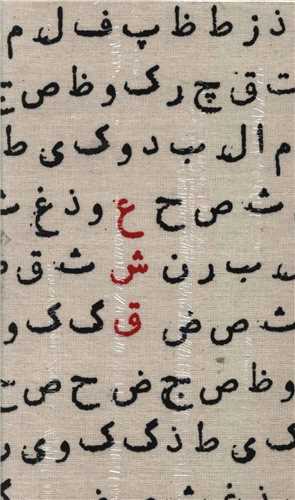 ذ ز ط ظ پ ف ل د م
ت ق چ ر ک و ظ ص چ
م ا ل ب د و ک ی ط
ث ص ح ع و ذ غ ث
د ب ر ن ش ث ق
ث ص ض ق گ ک و
و ظ ص چ ض ح ص
ک ی ط ذ گ ک و ی ر